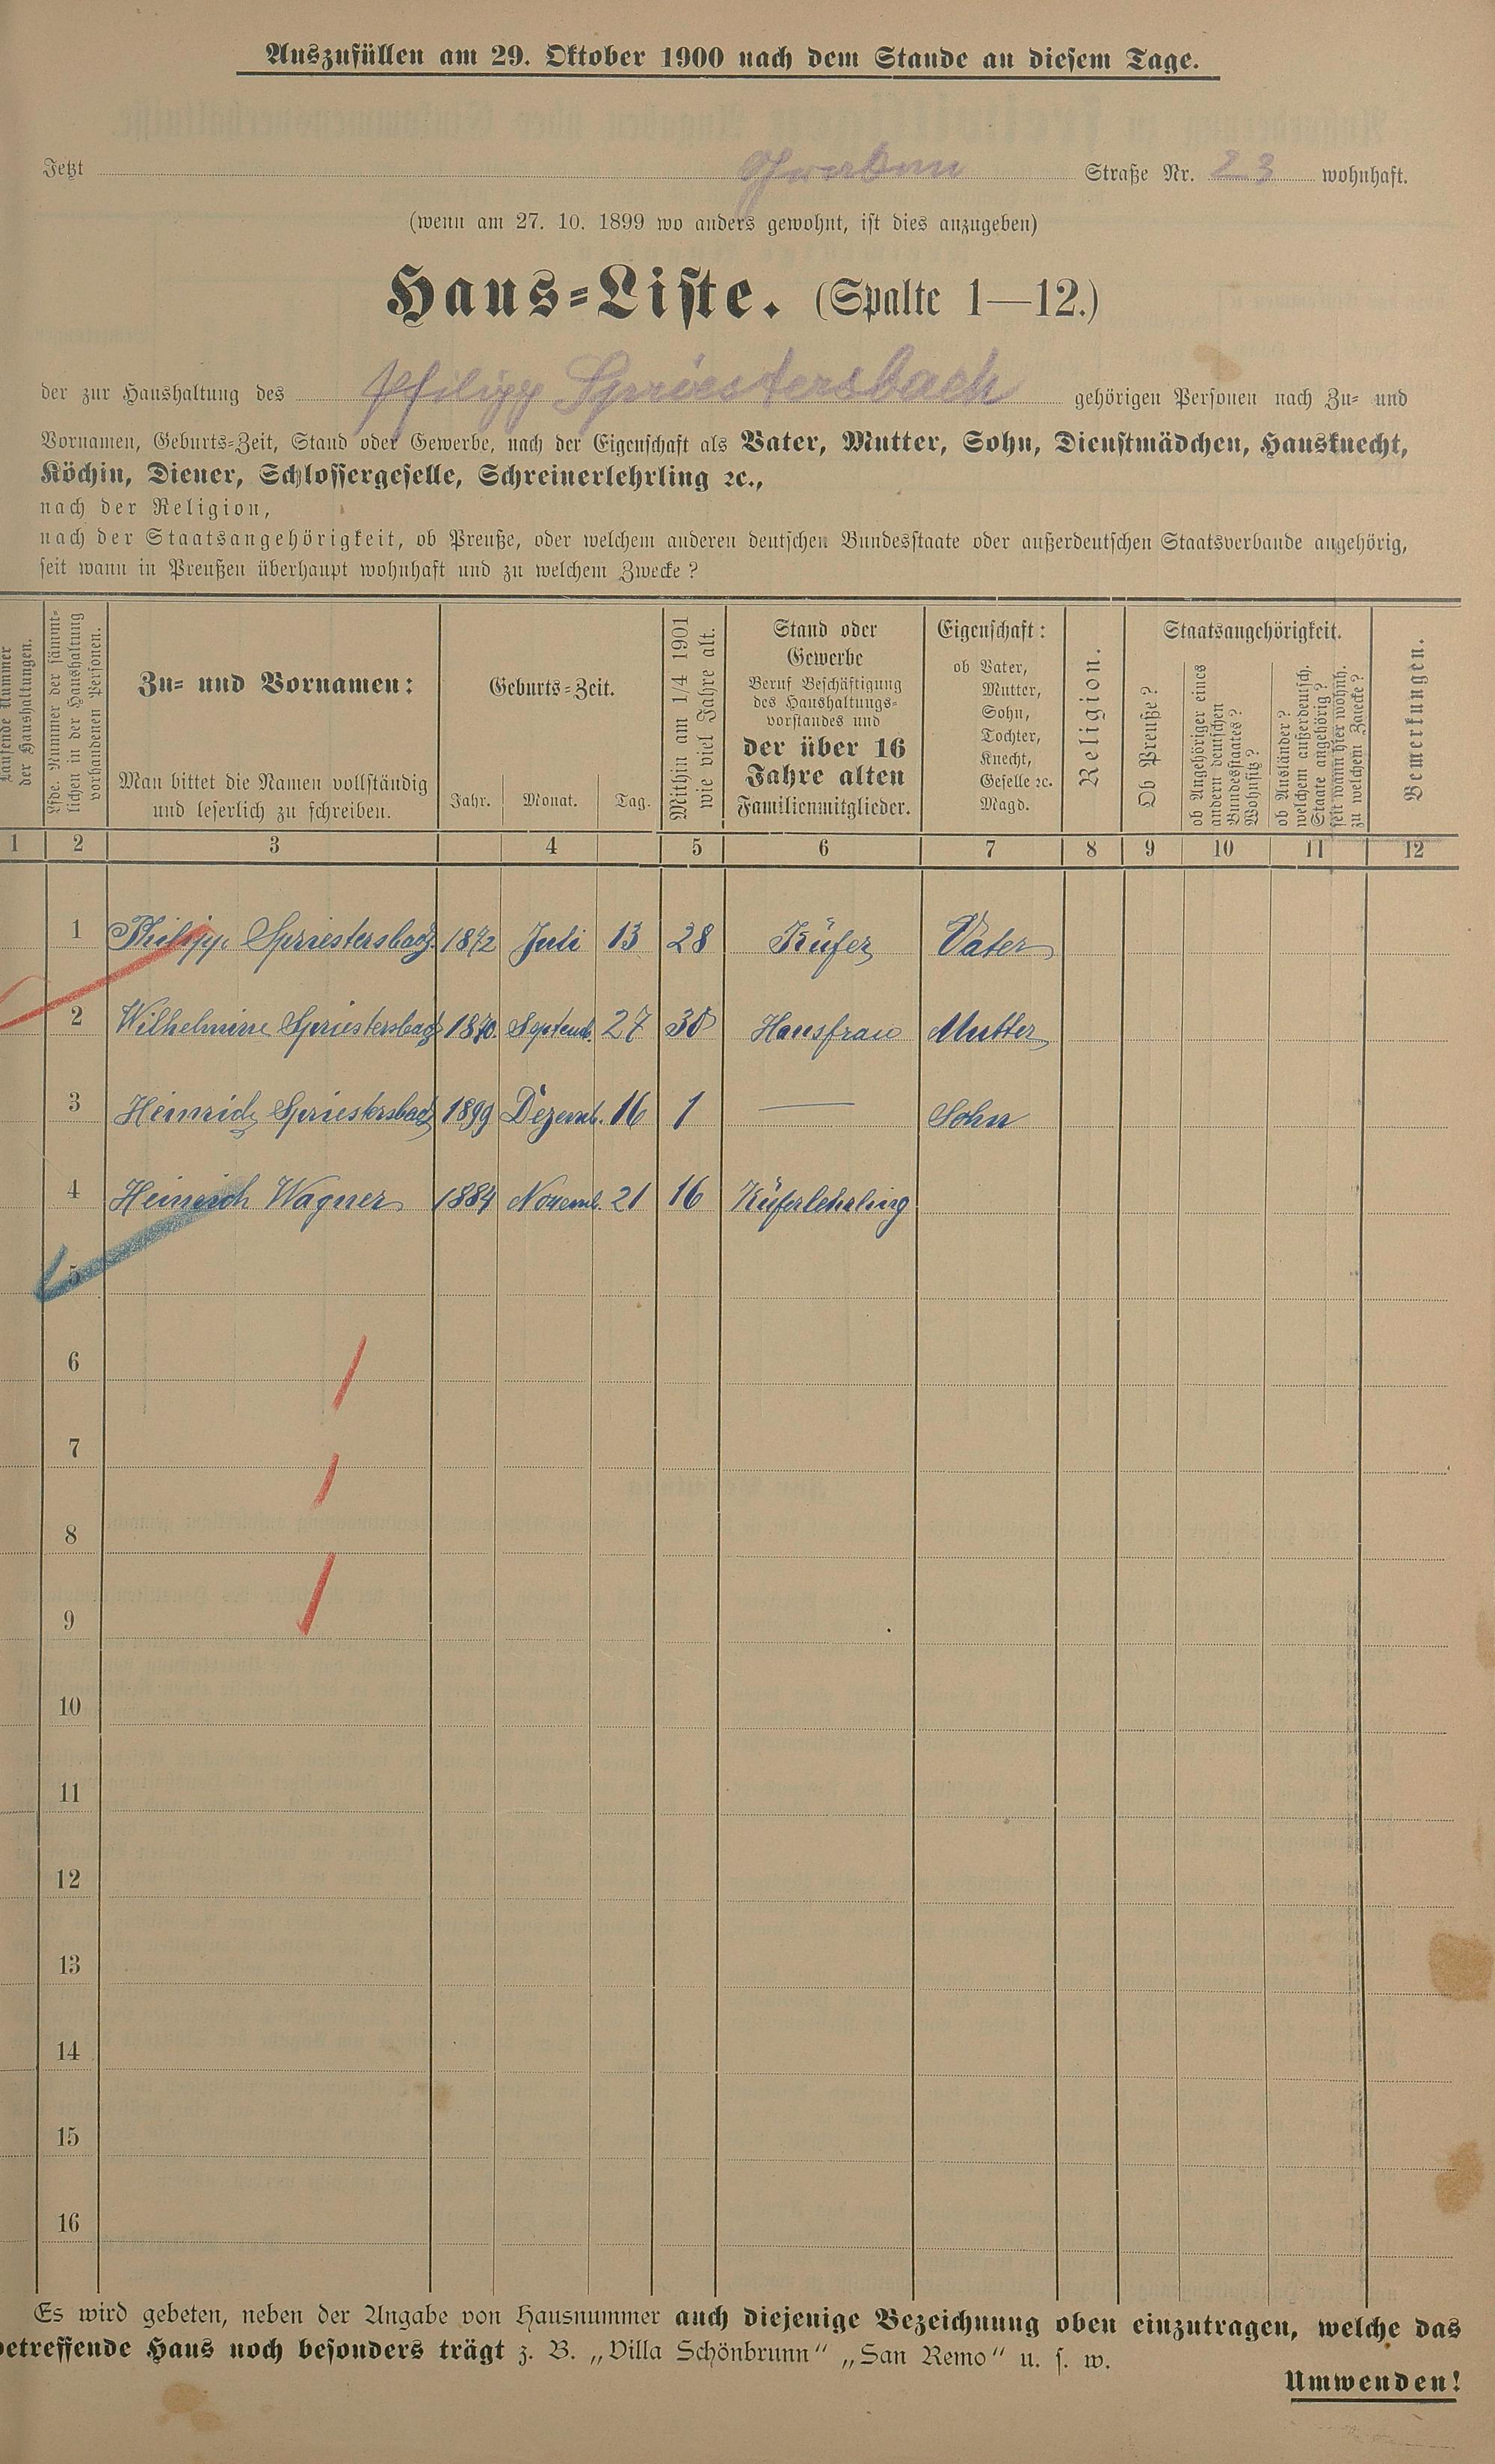 Auszufüllen am 29. Oktober 1900 nach dem Stande an diesem Tage.
Jetzt Graben Straße Nr. 23 wohnhaft.
(wenn am 27. 10. 1899 wo anders gewohnt, ist dies anzugeben)
Haus=Liste. (Spalte 1—12.)
der zur Haushaltung des Philipp Spriestersbach gehörigen Personen nach Zu= und
Vornamen, Geburts=Zeit, Stand oder Gewerbe, nach der Eigenschaft als Vater, Mutter, Sohn, Dienstmädchen, Hausknecht,
Köchin, Diener, Schlossergeselle, Schreinerlehrling ꝛc.,
nach der Religion,
nach der Staatsangehörigkeit, ob Preuße, oder welchem anderen deutschen Bundesstaate oder außerdeutschen Staatsverbande angehörig,
seit wann in Preußen überhaupt wohnhaft und zu welchem Zwecke?
Laufende Nummer
der Haushaltungen.
Lfde. Nummer der sämmt=
lichen in der Haushaltung
vorhandenen Personen.
Zu= und Vornamen:
Man bittet die Namen vollständig
und leserlich zu schreiben.
Geburts=Zeit.
Jahr. Monat. Tag.
Mithin am 1/4 1901
wie viel Jahre alt.
Stand oder
Gewerbe
Beruf Beschäftigung
des Haushaltungs=
vorstandes und
der über 16
Jahre alten
Familienmitglieder.
Eigenschaft:
ob Vater,
Mutter,
Sohn,
Tochter,
Knecht,
Geselle ꝛc.
Magd.
Religion.
Staatsangehörigkeit.
Ob Preuße?
ob Angehöriger eines
andern deutschen
Bundesstaates?
Wohnsitz?
ob Ausländer?
welchem außerdeutsch.
Staate angehörig?
seit wann hier wohnh.
zu welchem Zwecke?
Bemerkungen.
1 2 3 4 5 6 7 8 9 10 11 12
1 Philipp Spriestersbach 1872 Juli 13 28 Küfer Vater
2 Wilhelmine Spriestersbach 1870. Septemb. 27 30 Hausfrau Mutter
3 Heinrich Spriestersbach 1899 Dezemb. 16 1 — Sohn
4 Heinrich Wagner 1884 Novemb. 21 16 Küferlehrling
5
6
7
8
9
10
11
12
13
14
15
16
Es wird gebeten, neben der Angabe von Hausnummer auch diejenige Bezeichnung oben einzutragen, welche das
betreffende Haus noch besonders trägt z. B. „Villa Schönbrunn" „San Remo" u. s. w.
Umwenden!